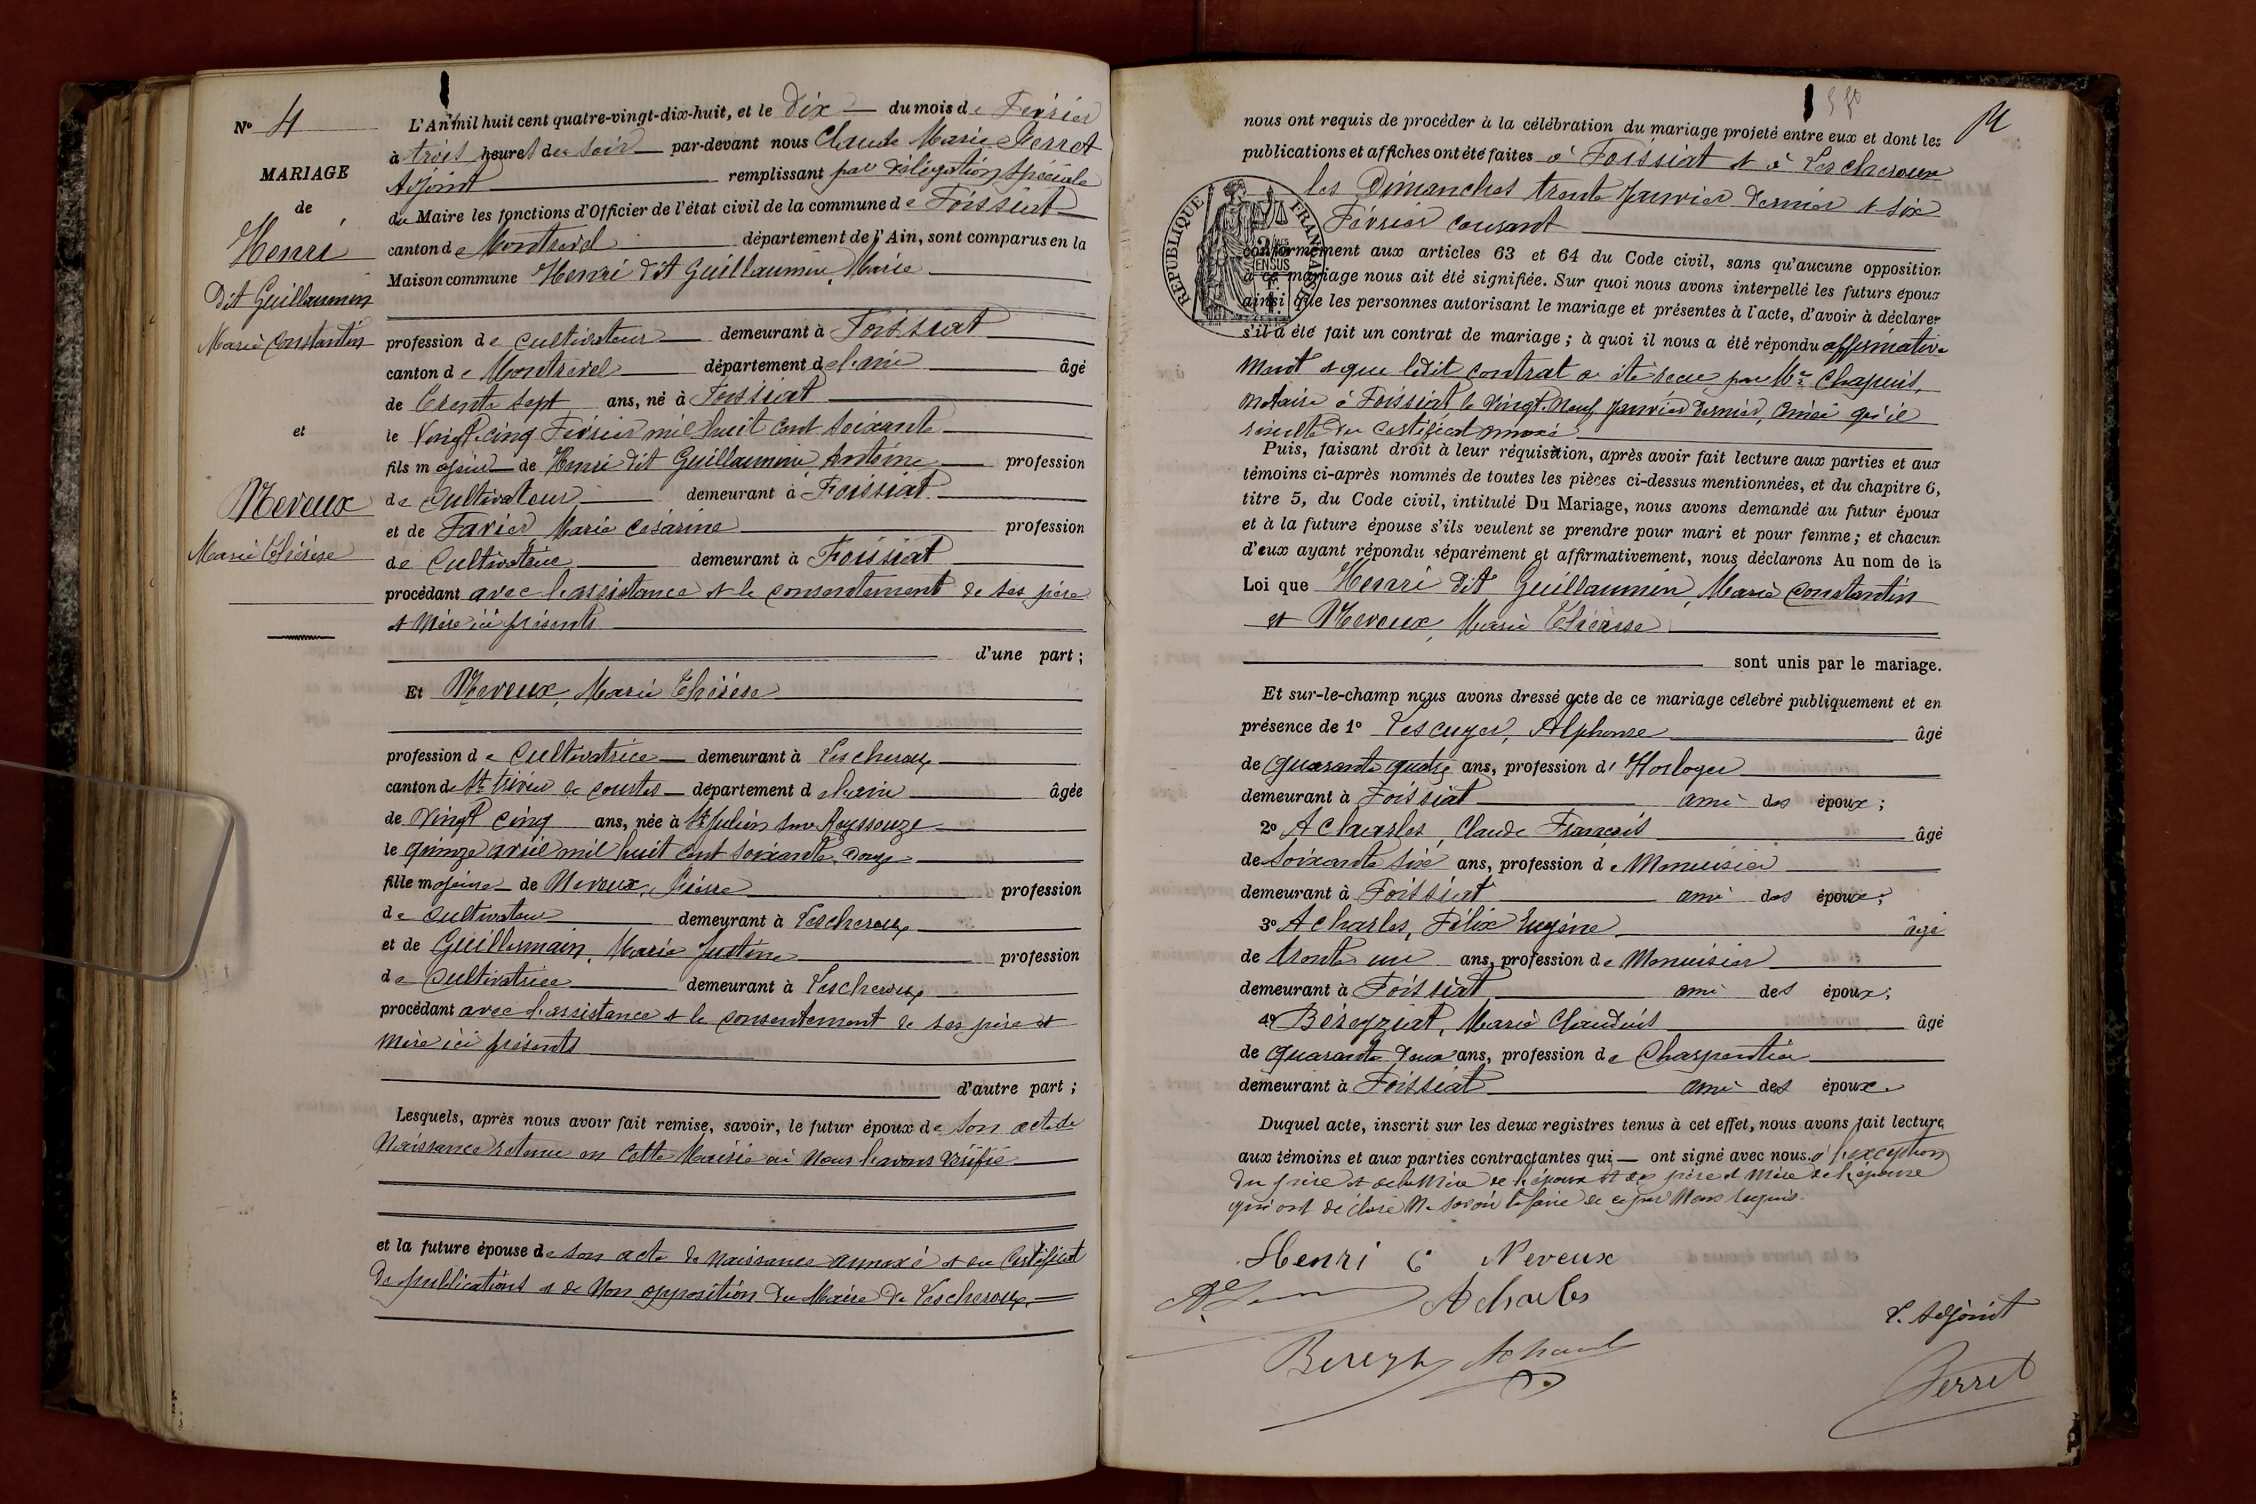 N° 4
MARIAGE
de
Henri
Dit Guillaumin
Marie Constantin
et
Neveux
Marie Thérèse
L'An mil huit cent quatre-vingt-dix-huit, et le Dix du mois de Février
à trois heures du Soir par-devant nous Claude Marie Perret
Adjoint remplissant par délégation spéciale
du Maire les fonctions d'Officier de l'état civil de la commune de Foissiat
canton de Montrevel département de l'Ain, sont comparus en la
Maison commune Henri dit Guillaumin, Marie
profession de cultivateur demeurant à Foissiat
canton de Montrevel département de l'ain âgé
de Trente sept ans, né à Foissiat
le Vingt-cinq Février mil huit cent soixante
fils majeur de Henri dit Guillaumin, Antoine profession
de Cultivateur demeurant à Foissiat
et de Favier Marie Césarine profession
de Cultivatrice demeurant à Foissiat
procédant avec l'assistance et le consentement de ses père
et Mère ici présents
d'une part ;
Et Neveux, Marie Thérèse
profession de Cultivatrice demeurant à Lescheroux
canton de St trivier de courtes département de l'ain âgée
de Vingt cinq ans, née à St Julien sur Reyssouze
le quinze avril mil huit cent soixante douze
fille majeure de Neveux, Pierre profession
de cultivateur demeurant à Lescheroux
et de Guillermain, Marie Justine profession
de Cultivatrice demeurant à Lescheroux
procédant avec l'assistance et le consentement de ses père et
Mère ici présents
d'autre part ;
Lesquels, après nous avoir fait remise, savoir, le futur époux de son acte de
Naissance retenu en cette Mairie où Nous l'avons Vérifié
et la future épouse de son acte de Naissance annexé et du Certificat
de publications et de Non opposition du Maire de Lescheroux.
nous ont requis de procéder à la célébration du mariage projeté entre eux et dont les
publications et affiches ont été faites à Foissiat et à Lescheroux
les Dimanches trente Janvier dernier et six
Février courant
RÉPUBLIQUE FRANÇAISE
conformément aux articles 63 et 64 du Code civil, sans qu'aucune opposition
à ce mariage nous ait été signifiée. Sur quoi nous avons interpellé les futurs époux
ainsi que les personnes autorisant le mariage et présentes à l'acte, d'avoir à déclarer
s'il a été fait un contrat de mariage ; à quoi il nous a été répondu affirmative
ment et que ledit contrat a été reçu par Me Chapuis,
Notaire à Foissiat le vingt-neuf Janvier dernier, ainsi qu'il
résulte du certificat annexé
Puis, faisant droit à leur réquisition, après avoir fait lecture aux parties et aux
témoins ci-après nommés de toutes les pièces ci-dessus mentionnées, et du chapitre 6,
titre 5, du Code civil, intitulé Du Mariage, nous avons demandé au futur époux
et à la future épouse s'ils veulent se prendre pour mari et pour femme ; et chacun
d'eux ayant répondu séparément et affirmativement, nous déclarons Au nom de la
Loi que Henri dit Guillaumin, Marie Constantin
et Neveux, Marie Thérèse
sont unis par le mariage.
Et sur-le-champ nous avons dressé acte de ce mariage célébré publiquement et en
présence de 1° Lescuyer, Alphonse âgé
de quarante quatre ans, profession d' Horloger
demeurant à Foissiat ami des époux ;
2° Acharles, Claude François âgé
de Soixante six ans, profession de Menuisier
demeurant à Foissiat ami des époux ;
3° Acharles, Félix Eugène âgé
de trente un ans, profession de Menuisier
demeurant à Foissiat ami des époux ;
4° Béreyziat, Marie Claudius âgé
de quarante deux ans, profession de Charpentier
demeurant à Foissiat ami des époux.
Duquel acte, inscrit sur les deux registres tenus à cet effet, nous avons fait lecture
aux témoins et aux parties contractantes qui ont signé avec nous à l'exception
du père et de la Mère de l'époux et des père et Mère de l'épouse
qui ont déclaré Ne savoir le faire de ce par Nous requis.
Henri C Neveux
Acharles
L'Adjoint
Perret